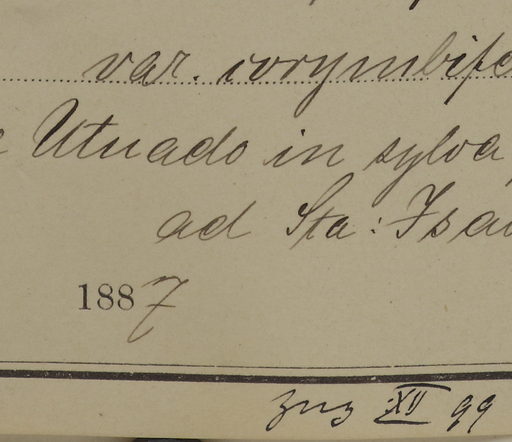 var. corymbife
Utuado in sylva
ad Sta: Isa
1887
XII 99